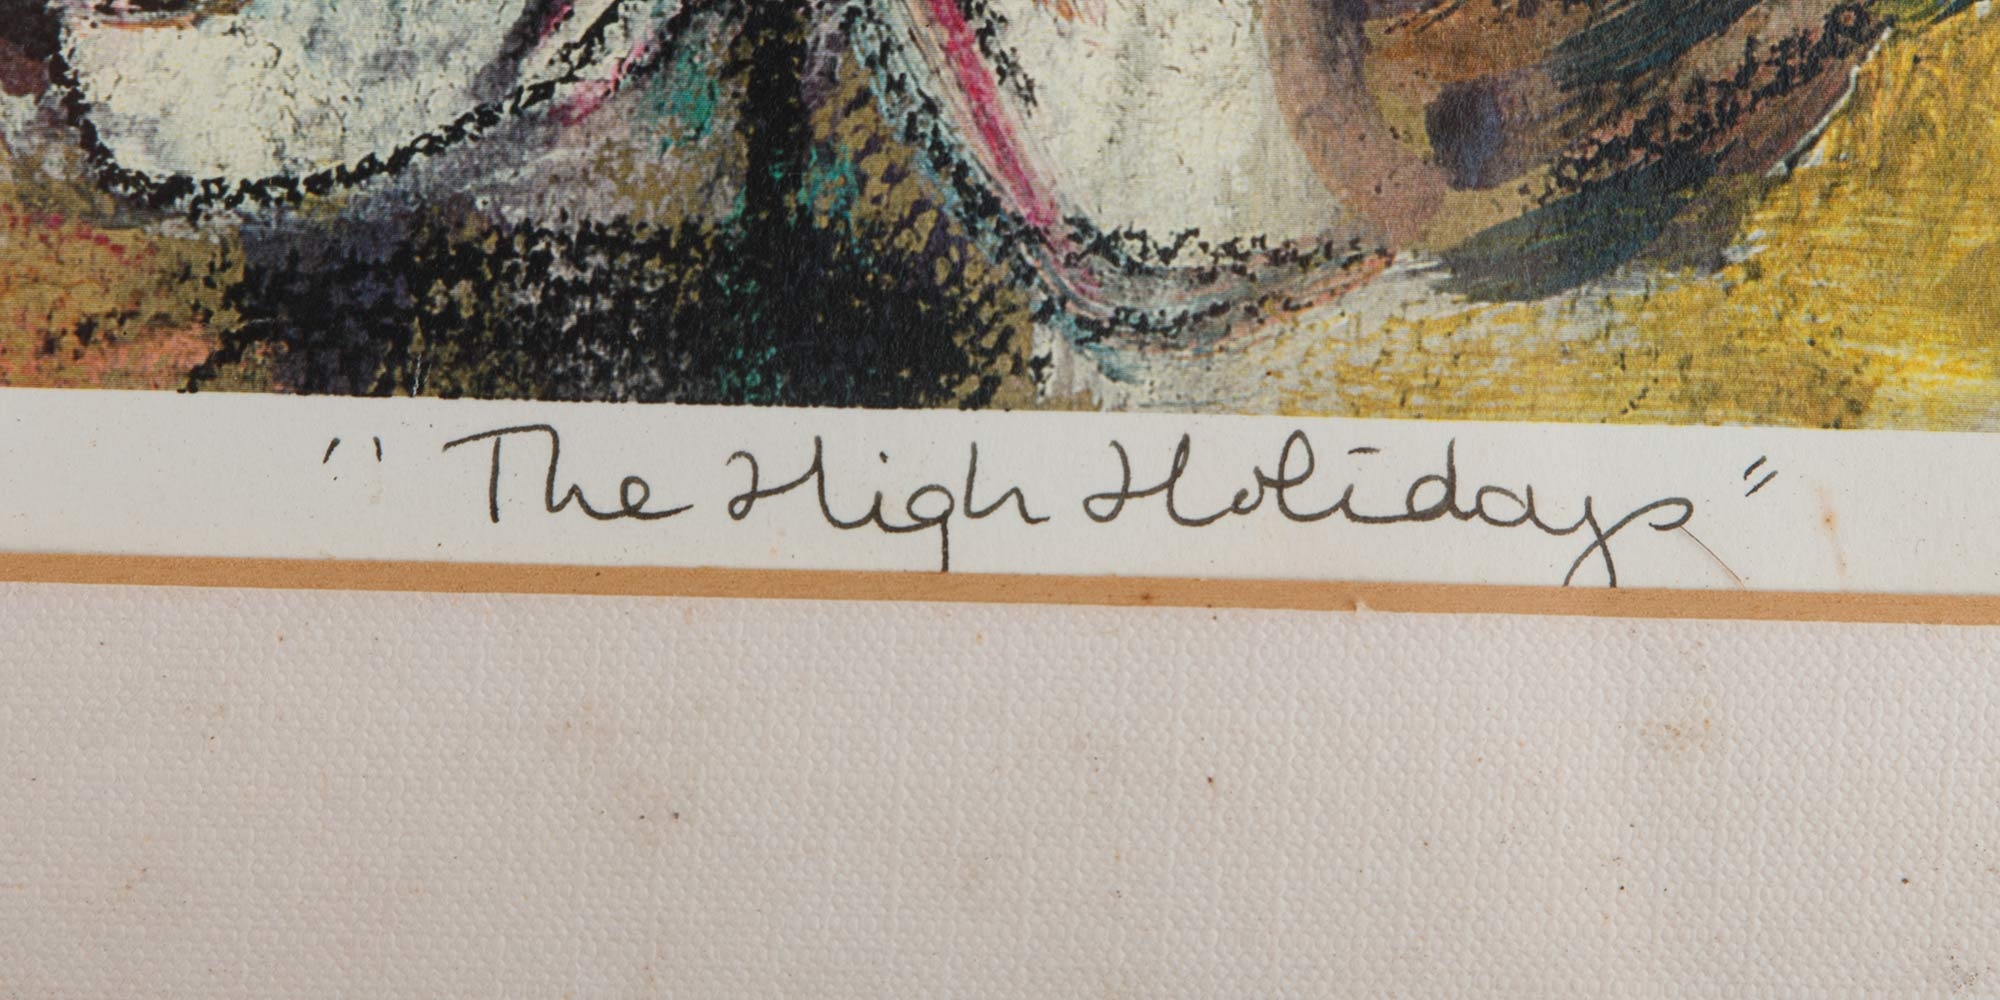 "The High Holidays"